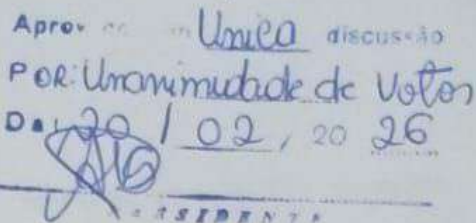 Unica discussão
POR: Unanimidade de Votos
20 / 02 / 20 26
PRESIDENTE